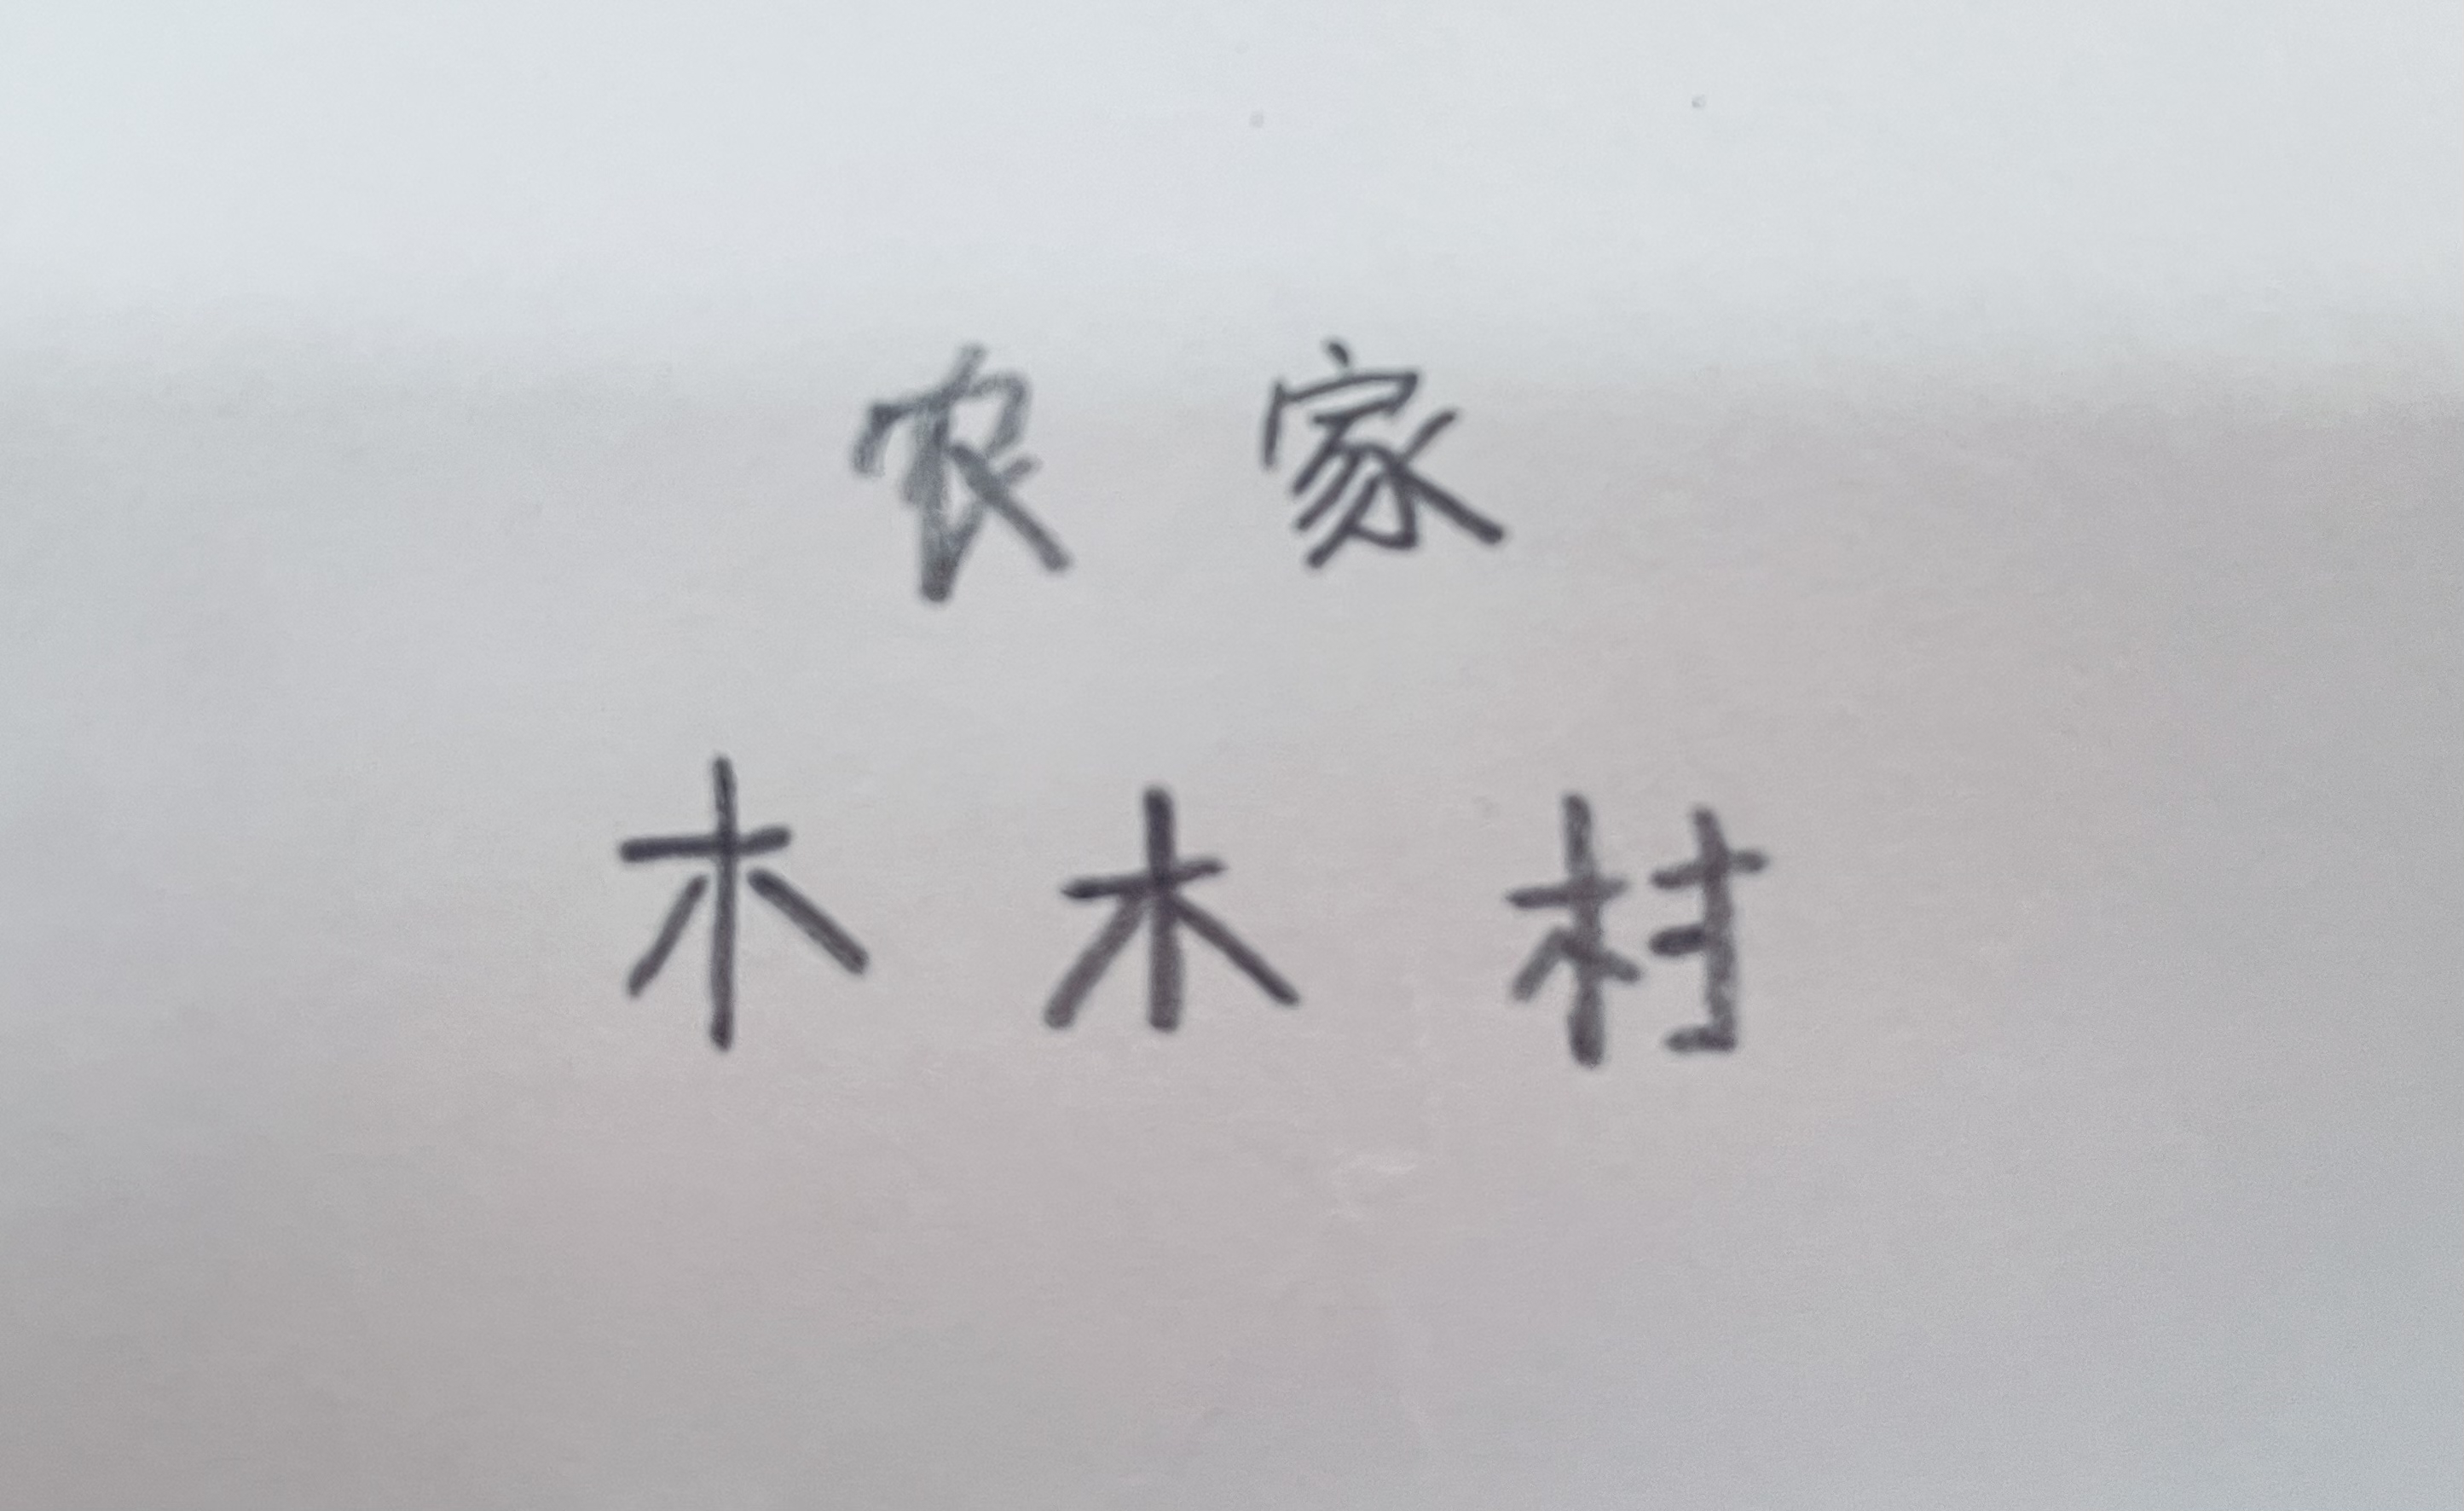 农家
木木村